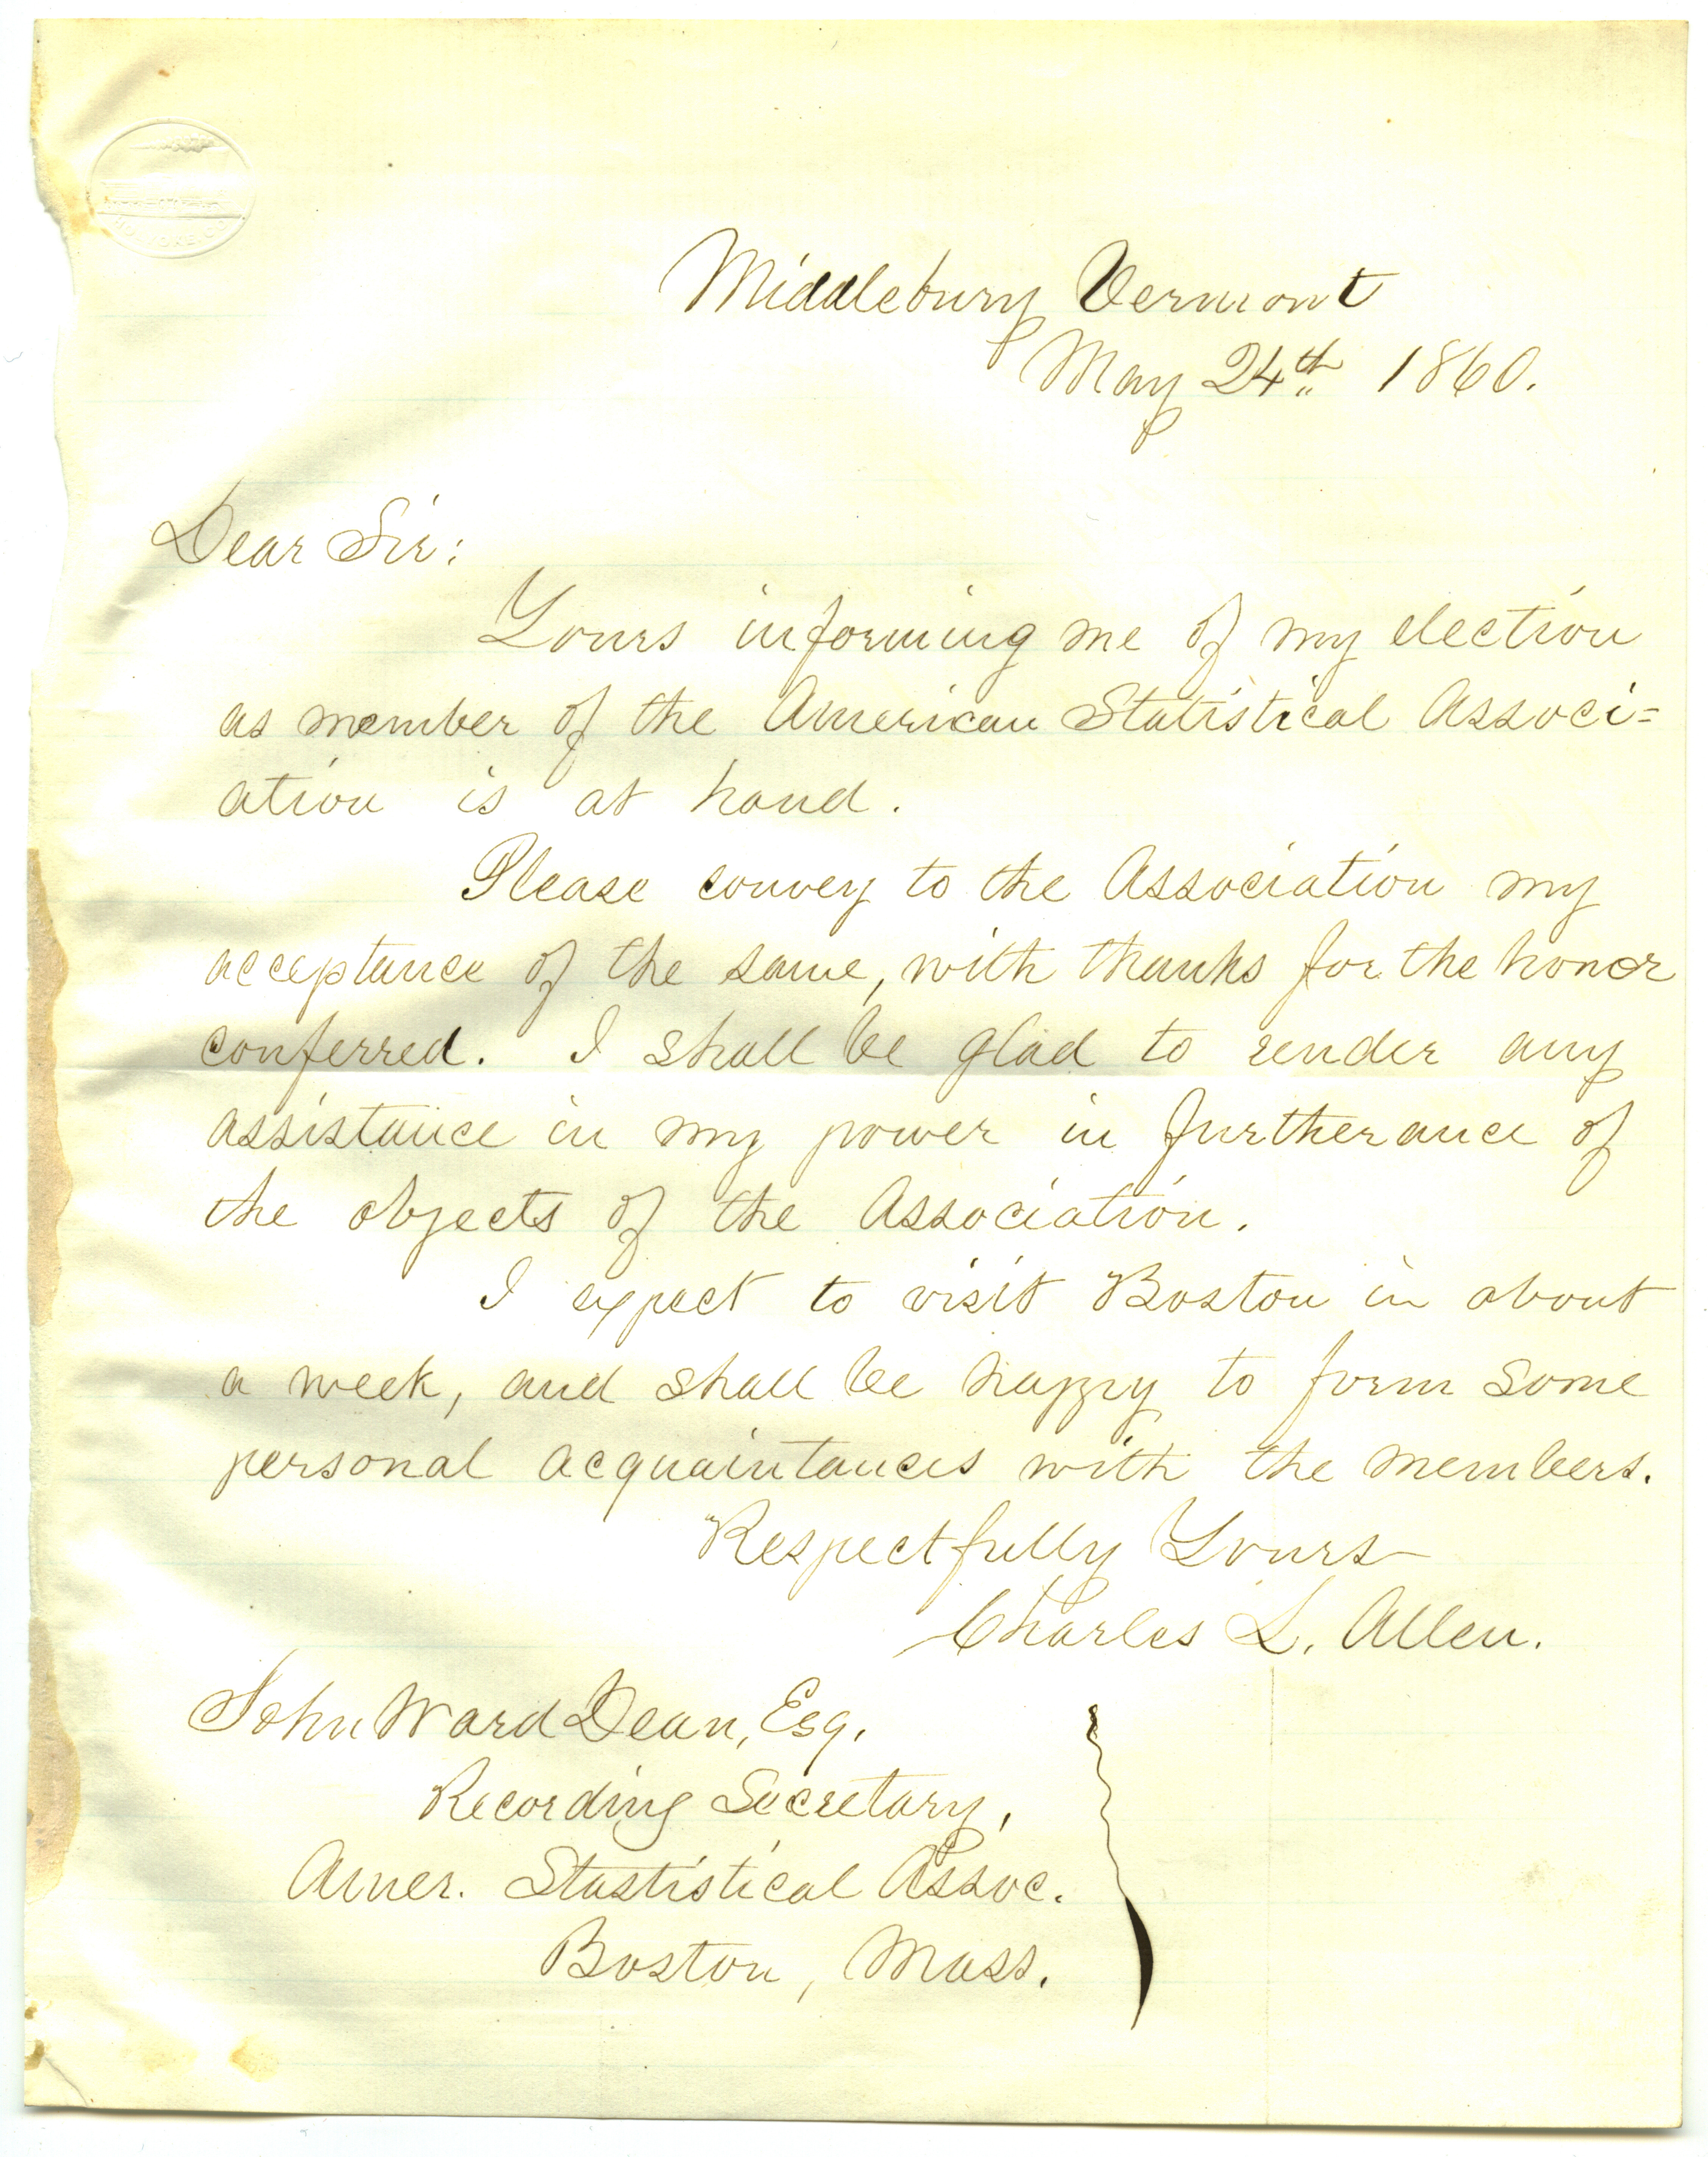 Middlebury Vermont
May 24th 1860.
Dear Sir:
Yours informing me of my election
as member of the American Statistical Associ=
ation is at hand.
Please convey to the Association my
acceptance of the same, with thanks for the honor
conferred. I shall be glad to render any
assistance in my power in furtherance of
the objects of the Association.
I expect to visit Boston in about
a week, and shall be happy to form some
personal acquaintances with the members.
Respectfully Yours
Charles L. Allen.
John Ward Dean, Esq.
Recording Secretary,
Amer. Stastistical Assoc.
Boston, Mass.